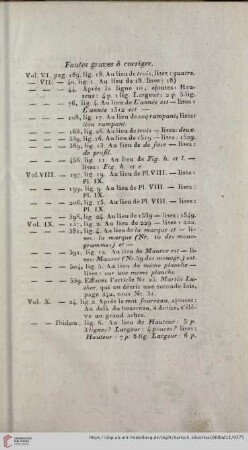 Fautes graves à corriger.
Vol. VI. pag. 189, lig. 18. Au lieu de trois, lisez: quatre.
— VII. — 40, lig. 1. Au lieu de 18. lisez: 18)
— — — 44. Après la ligne 10, ajoutez: Hau-
teur: 4 p. 1 lig. Largeur: 2 p. 5 lig.
— — — 76, lig. 4. Au lieu de L'année est — lisez:
L'année 1512 est
— — — 108, lig. 17. Au lieu de coq rampant, lisez:
lion rampant.
— — — 168, lig. 28. Au lieu de trois — lisez: deux.
— — — 339, lig. 16. Au lieu de 1519 — lisez: 1509.
— — — 389, lig. 13. Au lieu de de face — lisez:
de profil.
— — — 456, lig. 11. Au lieu de Fig. h. et l. —
lisez: Fig. h. et
Vol. VIII. — 197, lig. 19. Au lieu de Pl. VIII. — lisez:
Pl. IX.
— — — 199, lig. 9. Au lieu de Pl. VIII. — lisez:
Pl. IX.
— — — 206, lig. 15. Au lieu de Pl. VIII. — lisez:
Pl. IX.
— — — 398, lig. 24. Au lieu de 1539 — lisez: 1549.
Vol. IX. — 131, lig. 2. Au lieu de 229 — lisez: 202.
— — — 381, lig. 4. Au lieu de la marque et — li-
sez: la marque (Nr. 10 des mono-
grammes) et —
— — — 391, lig. 12. Au lieu de Maurer est — li-
sez: Maurer (Nr. 59 des monogr.) est
— — — 504, lig. 5. Au lieu de même planche —
lisez: sur une même planche
— — — 539. Effacez l'article Nr. 25. Martin Lu-
ther, qui un décrit une seconde fois,
page 542, sous Nr. 31.
Vol. X. — 24, lig. 2. Après le mot fourreau, ajoutez:
Au delà du bourreau, à droite, s'élè-
ve un grand arbre.
— — — Ibidem: lig. 6. Au lieu de Hauteur: 8 p.
3 lignes? Largeur: 4 pouces? lisez:
Hauteur: 7 p. 6 lig. Largeur: 6 p.